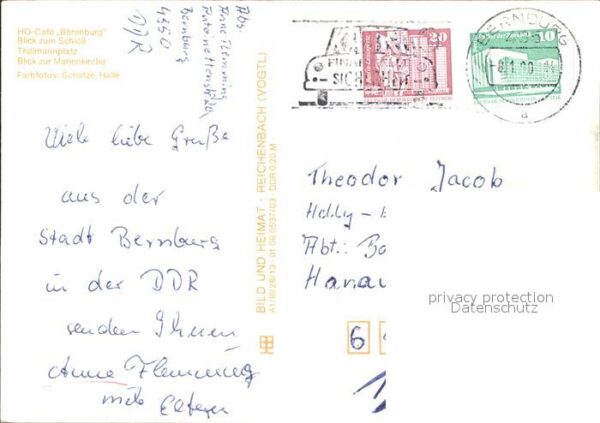 HO-Café „Bärenburg"
Blick zum Schloß
Thälmannplatz
Blick zur Marienkirche
Farbfotos: Schütze, Halle
Abs.
Anne Flemming
Bernburg
4350
DDR
Viele liebe Grüße
aus der
Stadt Bernburg
in der DDR
senden Ihnen
Anne Flemming
mit Eltern
BILD UND HEIMAT · REICHENBACH (VOGTL)
A1/B/26/13 · 01 08 0537/03 · DDR 0,20 M
20
10
BERNBURG
a
Theodor Jacob
Abt.:
Hanau
privacy protection
Datenschutz
6